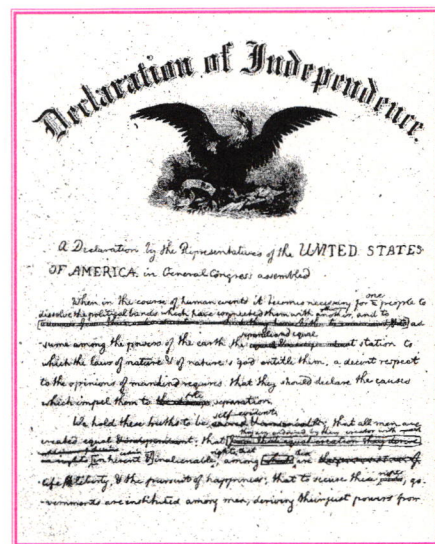 Declaration of Independence.
A Declaration by the Representatives of the UNITED STATES
OF AMERICA. in General Congress assembled
When in the course of human events it becomes necessary for one people to
dissolve the political bands which have connected them with another, and to
as
sume among the powers of the earth the separate and equal station to
which the laws of nature & of nature's god entitle them, a decent respect
to the opinions of mankind requires that they should declare the causes
which impel them to the separation.
We hold these truths to be self-evident, that all men are
created equal that they are endowed by their creator with
inherent & inalienable rights, that among these are
life & liberty, & the pursuit of happiness; that to secure these rights, go
vernments are instituted among men, deriving their just powers from